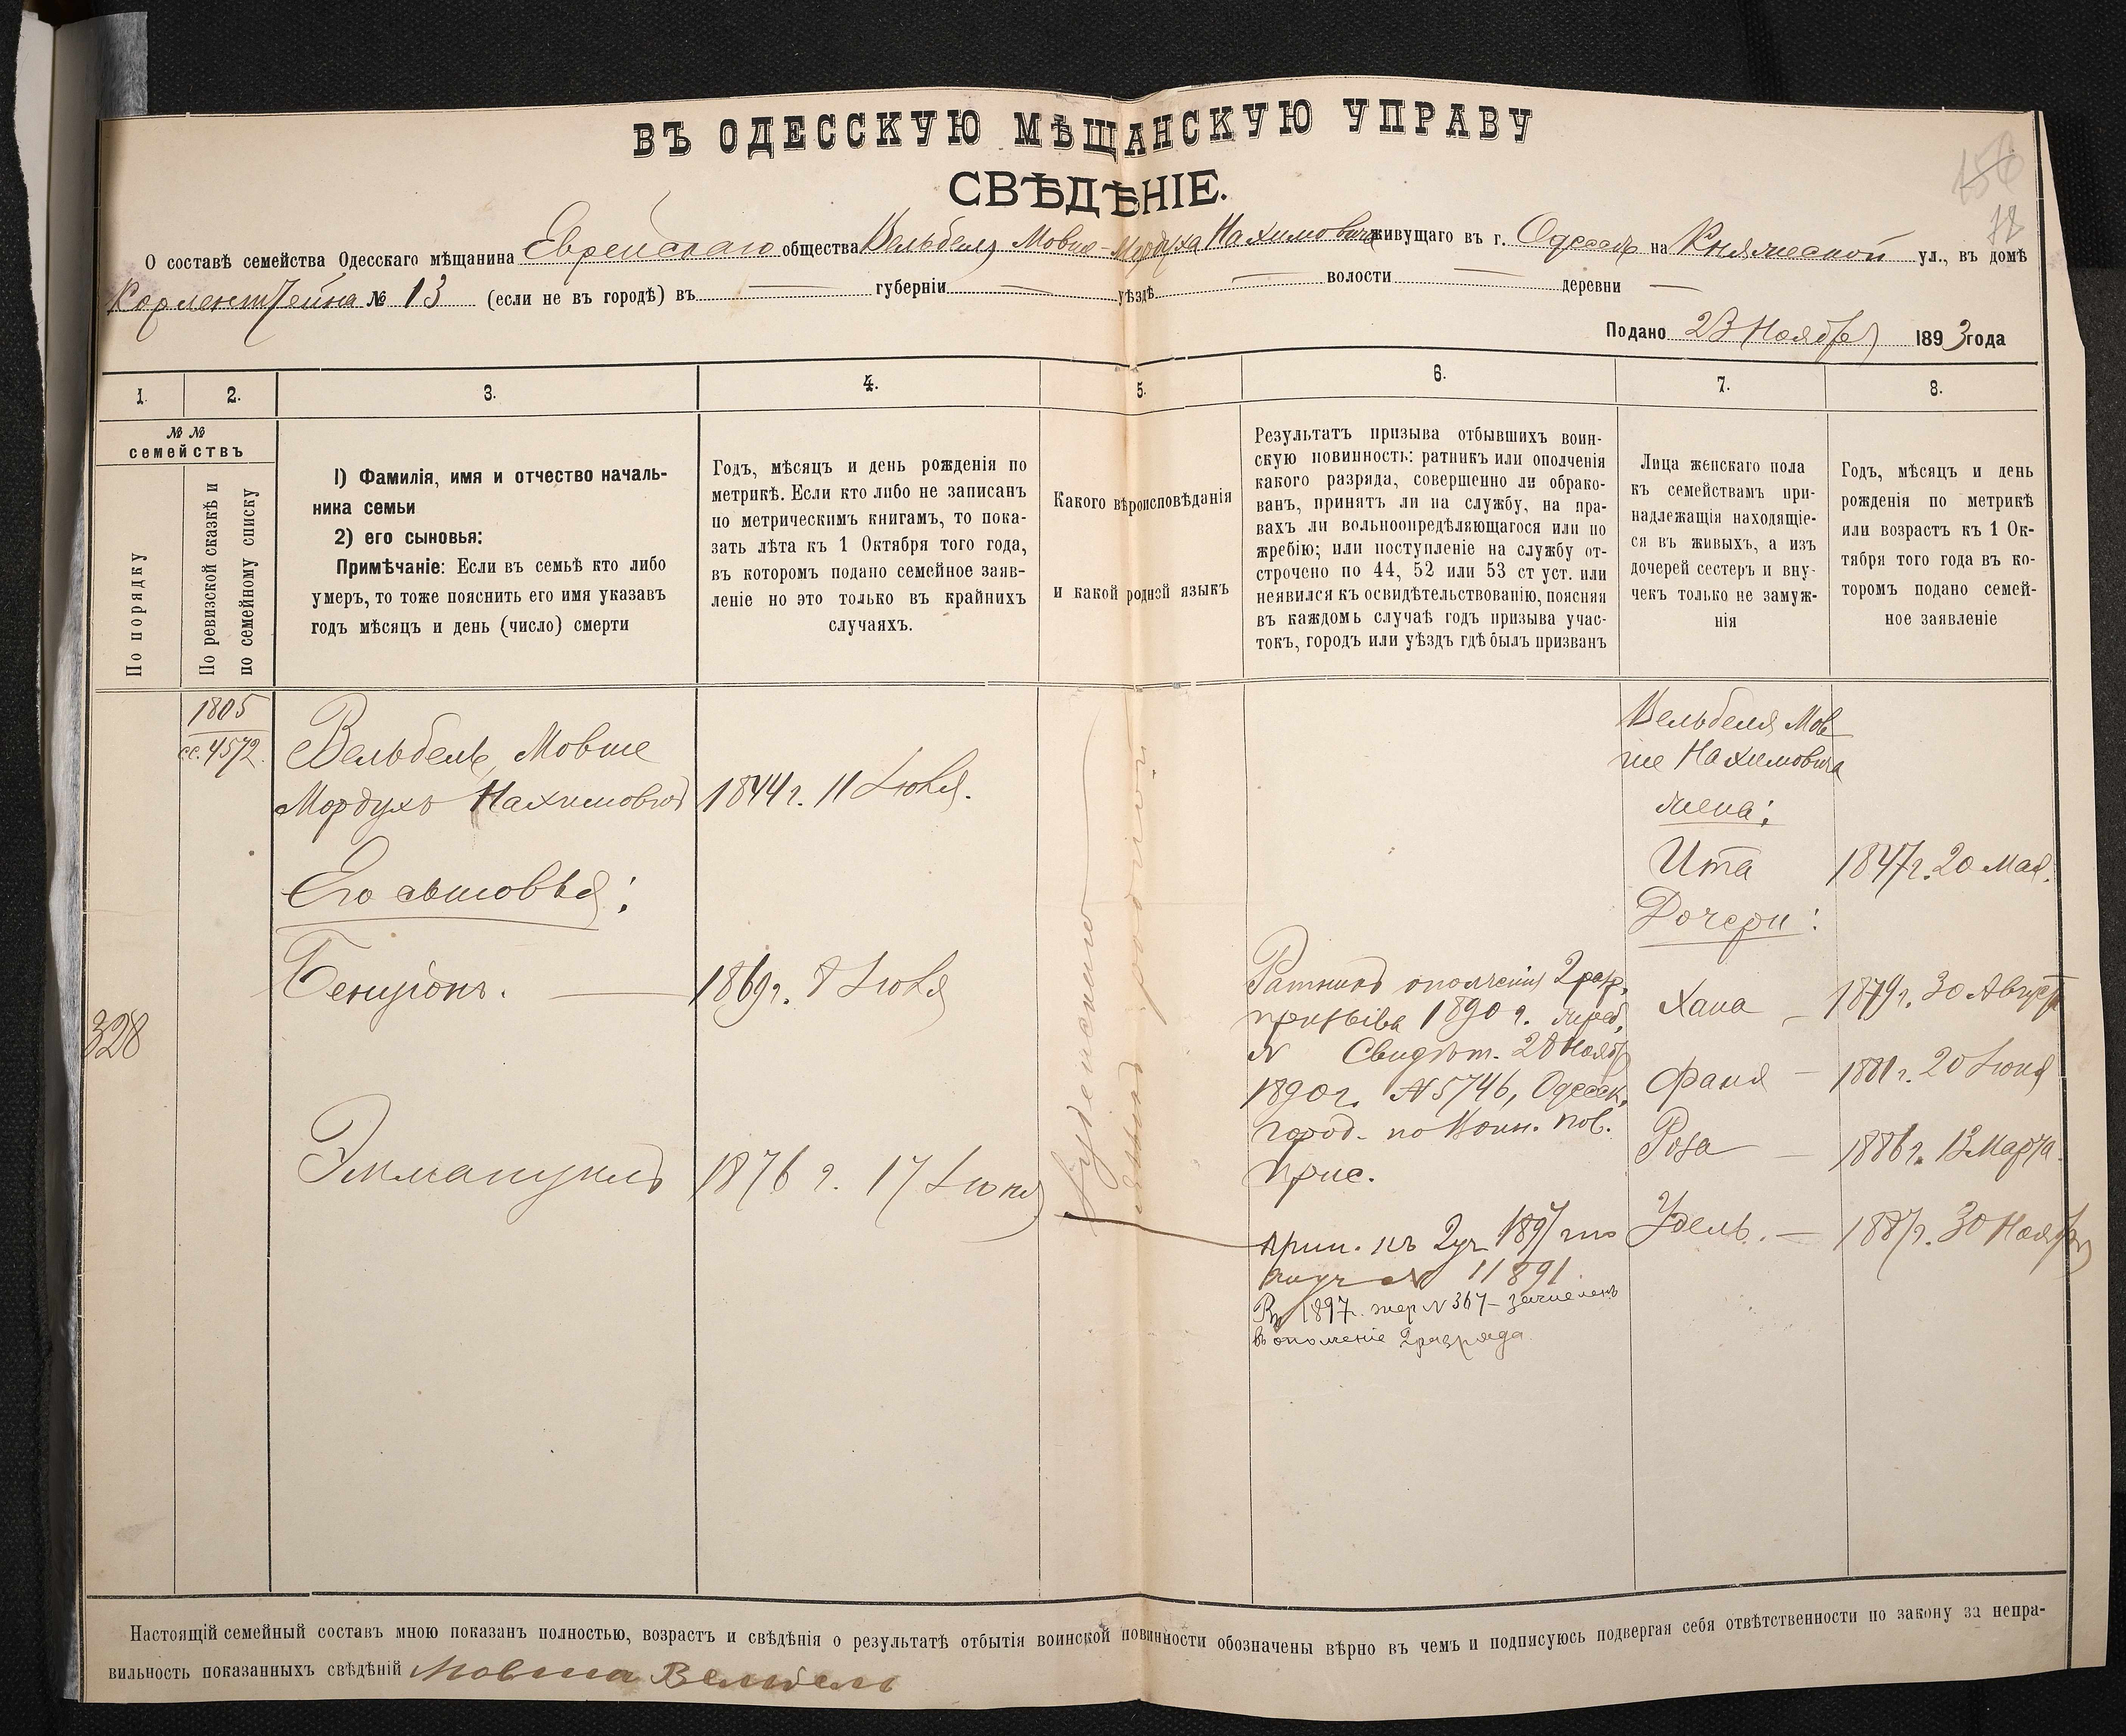 ВЪ ОДЕССКУЮ МѢЩАНСКУЮ УПРАВУ
СВѢДѢНІЕ.
156
О составѣ семейства Одесскаго мѣщанина Еврейскаго общества Вельбеля Мовше-Мордуха Нахимовича живущаго въ г. Одессѣ на Княжеской ул., въ домѣ
№ 13 (если не въ городѣ) въ — губерніи — уѣздѣ — волости — деревни —
Подано 23 Ноября 1893 года
1. 2. 3. 4. 5. 6. 7. 8.
№ №
семействъ
По порядку
По ревизской сказкѣ и
по семейному списку
1) Фамилія, имя и отчество началь-
ника семьи
2) его сыновья:
Примѣчаніе: Если въ семьѣ кто либо
умеръ, то тоже пояснить его имя указавъ
годъ мѣсяцъ и день (число) смерти
Годъ, мѣсяцъ и день рожденія по
метрикѣ. Если кто либо не записанъ
по метрическимъ книгамъ, то пока-
зать лѣта къ 1 Октября того года,
въ которомъ подано семейное заяв-
леніе но это только въ крайнихъ
случаяхъ.
Какого вѣроисповѣданія
и какой родной языкъ
Результатъ призыва отбывшихъ воин-
скую повинность: ратникъ или ополченія
какого разряда, совершенно ли обрако-
ванъ, принятъ ли на службу, на пра-
вахъ ли вольноопредѣляющагося или по
жребію; или поступленіе на службу от-
строчено по 44, 52 или 53 ст уст. или
неявился къ освидѣтельствованію, поясняя
въ каждомъ случаѣ годъ призыва учас-
токъ, городъ или уѣздъ гдѣ былъ призванъ
Лица женскаго пола
къ семействамъ при-
надлежащія находящіе-
ся въ живыхъ, а изъ
дочерей сестеръ и вну-
чекъ только не замуж-
нія
Годъ, мѣсяцъ и день
рожденія по метрикѣ
или возрастъ къ 1 Ок-
тября того года въ ко-
торомъ подано семей-
ное заявленіе
328
1805
сс. 4572.
Вельбель, Мовше
Мордухъ Нахимовичъ
1844 г. 11 Іюля.
Его сыновья:
Бенціонъ. — 1869 г. 8 Іюля
Эммануилъ 1876 г. 17 Іюня
Іудейскаго
родной
Ратникъ ополченія 2 разр.
призыва 1890 г. жреб.
№ Свидѣт. 28 Нояб
1890 г. № 5746, Одесск.
город. по Воин. пов.
прис.
прип. къ 2 уч 1897
№ 11891
1897 г. жер № 367 – зачисленъ
въ ополченіе 2 разряда
Вельбеля Мов
ше Нахимовича
жена:
Ита 1847 г. 20 Мая.
Дочери:
Хана — 1879 г. 30 Августа
Фаня — 1881 г. 20 Іюня
Роза — 1886 г. 13 Марта.
Удель. — 1887 г. 30 Ноября
Настоящій семейный составъ мною показанъ полностью, возрастъ и свѣдѣнія о результатѣ отбытія воинской повинности обозначены вѣрно въ чемъ и подписуюсь подвергая себя отвѣтственности по закону за непра-
вильность показанныхъ свѣдѣній Мовша Вельбель